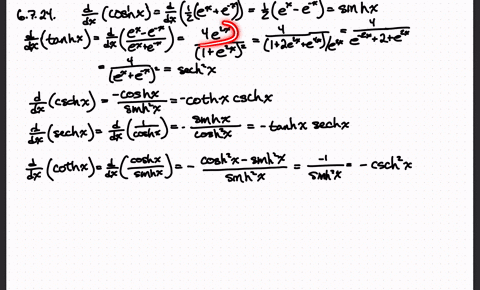 6.7.24. d/dx (coshx) = d/dx (½(eˣ+e⁻ˣ)) = ½(eˣ-e⁻ˣ) = sinhx
d/dx (tanhx) = d/dx ((eˣ-e⁻ˣ)/(eˣ+e⁻ˣ)) = 4e²ˣ/(1+e²ˣ)² = 4/((1+2e²ˣ+e⁴ˣ)/e²ˣ) = 4/(e⁻²ˣ+2+e²ˣ)
= 4/(eˣ+e⁻ˣ)² = sech²x
d/dx (cschx) = -coshx/sinh²x = -cothx cschx
d/dx (sechx) = d/dx (1/coshx) = - sinhx/cosh²x = -tanhx sechx
d/dx (cothx) = d/dx (coshx/sinhx) = - (cosh²x-sinh²x)/sinh²x = -1/sinh²x = -csch²x